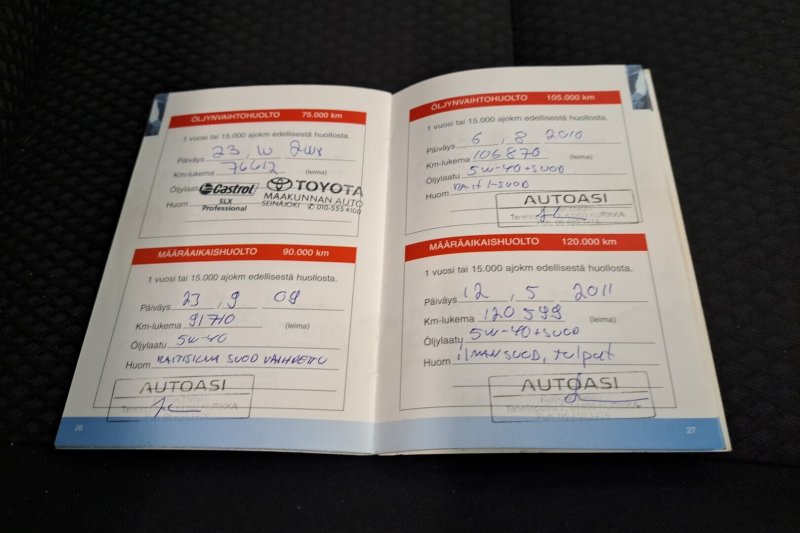 ÖLJYNVAIHTOHUOLTO 75.000 km
1 vuosi tai 15.000 ajokm edellisestä huollosta.
Päiväys 23, 10
Km-lukema 76612
Öljylaatu Castrol TOYOTA
SLX MAAKUNNAN AUTO
Huom Professional SEINÄJOKI
MÄÄRÄAIKAISHUOLTO 90.000 km
1 vuosi tai 15.000 ajokm edellisestä huollosta.
Päiväys 23, 9 09
Km-lukema 91710 (leima)
Öljylaatu 5W-40
Huom RAITISILMA SUOD VAIHDETTU
AUTOASI
26
ÖLJYNVAIHTOHUOLTO 105.000 km
1 vuosi tai 15.000 ajokm edellisestä huollosta.
Päiväys 6, 8 2010
Km-lukema 106870 (leima)
Öljylaatu 5W-40+SUOD
Huom RAIT I-SUOD
AUTOASI
MÄÄRÄAIKAISHUOLTO 120.000 km
1 vuosi tai 15.000 ajokm edellisestä huollosta.
Päiväys 12, 5 2011
Km-lukema 120599 (leima)
Öljylaatu 5W-40+SUOD
Huom ilMANSUOD, tulpat
AUTOASI
27